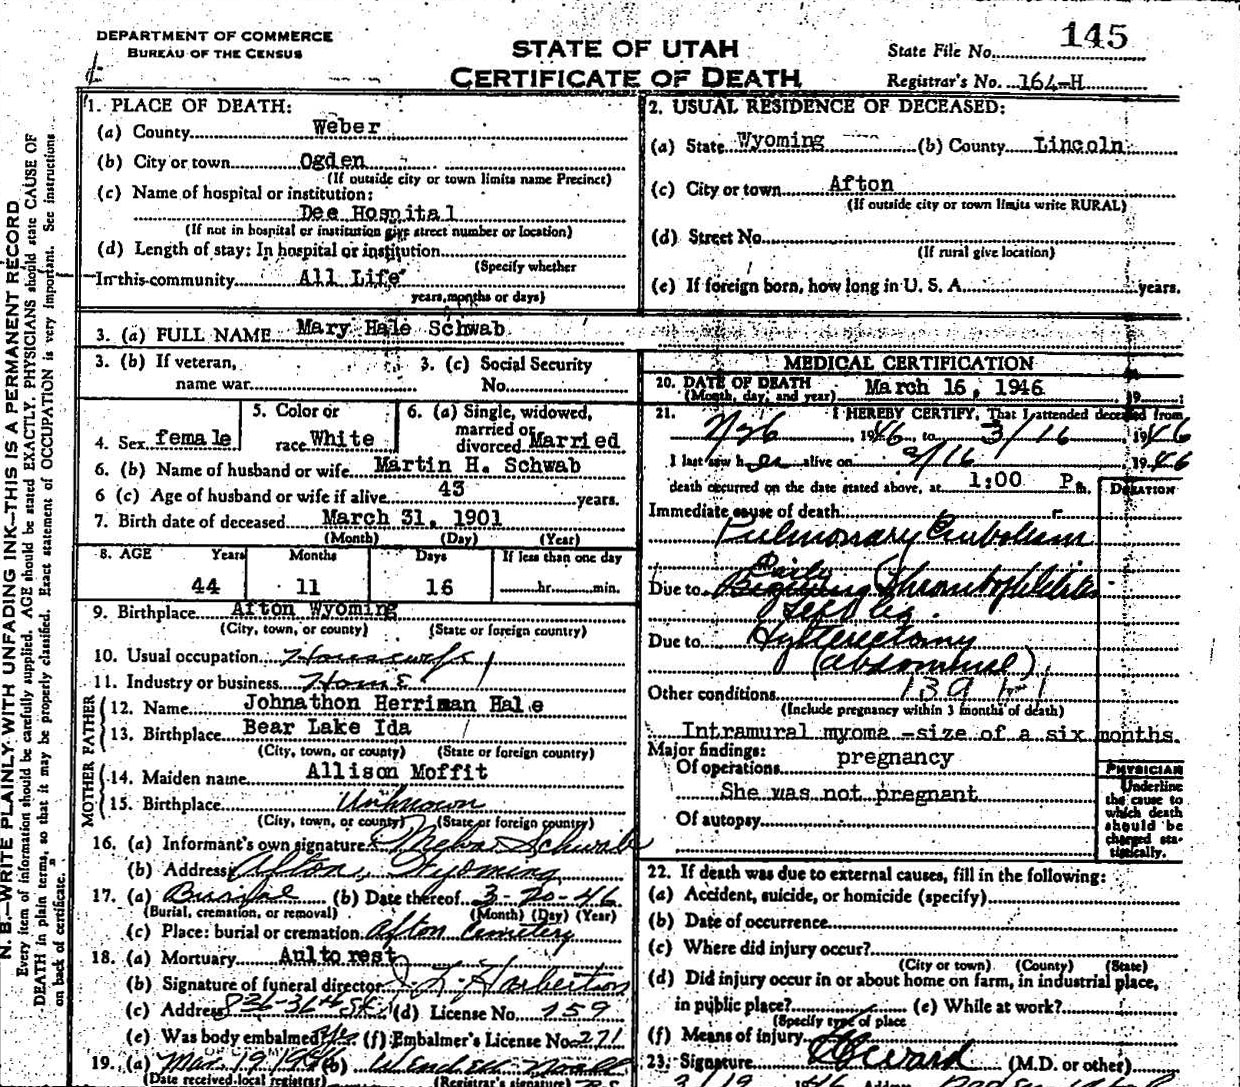 DEPARTMENT OF COMMERCE
BUREAU OF THE CENSUS
STATE OF UTAH
CERTIFICATE OF DEATH
State File No. 145
Registrar's No. 164-H
N. B.—WRITE PLAINLY WITH UNFADING INK—THIS IS A PERMANENT RECORD
Every item of information should be carefully supplied. AGE should be stated EXACTLY. PHYSICIANS should state CAUSE OF
DEATH in plain terms, so that it may be properly classified. Exact statement of OCCUPATION is very important. See instructions
on back of certificate.
1. PLACE OF DEATH:
(a) County Weber
(b) City or town Ogden
(If outside city or town limits name Precinct)
(c) Name of hospital or institution:
Dee Hospital
(If not in hospital or institution give street number or location)
(d) Length of stay: In hospital or institution
(Specify whether
In this community All Life
years, months or days)
2. USUAL RESIDENCE OF DECEASED:
(a) State Wyoming (b) County Lincoln
(c) City or town Afton
(If outside city or town limits write RURAL)
(d) Street No.
(If rural give location)
(e) If foreign born, how long in U. S. A. years.
3. (a) FULL NAME Mary Hale Schwab
3. (b) If veteran, 3. (c) Social Security
name war No.
4. Sex female
5. Color or
race White
6. (a) Single, widowed,
married or
divorced Married
6. (b) Name of husband or wife Martin H. Schwab
6 (c) Age of husband or wife if alive 43 years.
7. Birth date of deceased March 31, 1901
(Month) (Day) (Year)
8. AGE Years Months Days If less than one day
44 11 16 hr. min.
9. Birthplace Afton Wyoming
(City, town, or county) (State or foreign country)
10. Usual occupation Housewife
11. Industry or business Home
FATHER
12. Name Johnathon Herriman Hale
13. Birthplace Bear Lake Ida
(City, town, or county) (State or foreign country)
MOTHER
14. Maiden name Allison Moffit
15. Birthplace Unknown
(City, town, or county) (State or foreign country)
16. (a) Informant's own signature Schwab
(b) Address Afton, Wyoming
17. (a) Burial (b) Date thereof 3-20-46
(Burial, cremation, or removal) (Month) (Day) (Year)
(c) Place: burial or cremation Afton Cemetery
18. (a) Mortuary Aultorest
(b) Signature of funeral director Harbertson
(c) Address 836-36th St. (d) License No. 159
(e) Was body embalmed yes (f) Embalmer's License No. 271
19. (a) Mar 19 1946 (b) Wendell
(Date received local registrar) (Registrar's signature)
MEDICAL CERTIFICATION
20. DATE OF DEATH March 16, 1946 19
(Month, day, and year)
21. I HEREBY CERTIFY, That I attended deceased from
1946, to 3/16 1946
I last saw her alive on 3/16 1946
death occurred on the date stated above, at 1:00 P m.
DURATION
Immediate cause of death
Pulmonary Embolism
Early
Due to Thrombophlebitis
Left leg.
Due to Hysterectomy
(abdominal)
Other conditions
(Include pregnancy within 3 months of death)
Intramural myoma -size of a six months
Major findings: pregnancy
Of operations
She was not pregnant
Of autopsy
PHYSICIAN
Underline
the cause to
which death
should be
charged sta-
tistically.
22. If death was due to external causes, fill in the following:
(a) Accident, suicide, or homicide (specify)
(b) Date of occurrence
(c) Where did injury occur?
(City or town) (County) (State)
(d) Did injury occur in or about home on farm, in industrial place,
in public place? (e) While at work?
(Specify type of place
(f) Means of injury
23. Signature (M.D. or other)
3/19 1946